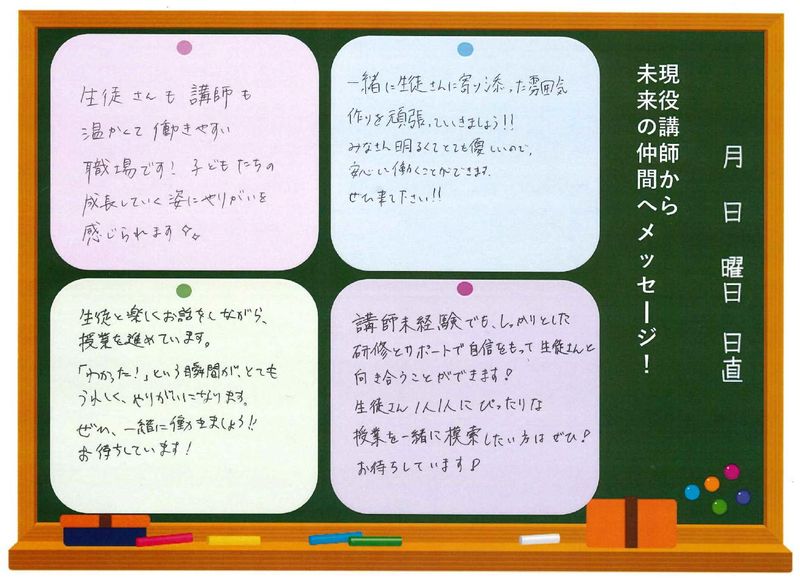 月　日　曜日　日直
現役講師から
未来の仲間へメッセージ！
生徒さんも講師も
温かくて働きやすい
職場です！子どもたちの
成長していく姿にやりがいを
感じられます✧｡
一緒に生徒さんに寄り添った雰囲気
作りを頑張っていきましょう!!
みなさん明るくてとても優しいので、
安心して働くことができます。
ぜひ来て下さい!!
生徒と楽しくお話をしながら、
授業を進めています。
「わかった！」という瞬間が、とても
うれしく、やりがいになります。
ぜひ、一緒に働きましょう!!
お待ちしています！
講師未経験でも、しっかりとした
研修とサポートで自信をもって生徒さんと
向き合うことができます！
生徒さん1人1人にぴったりな
授業を一緒に模索したい方はぜひ！
お待ちしています！